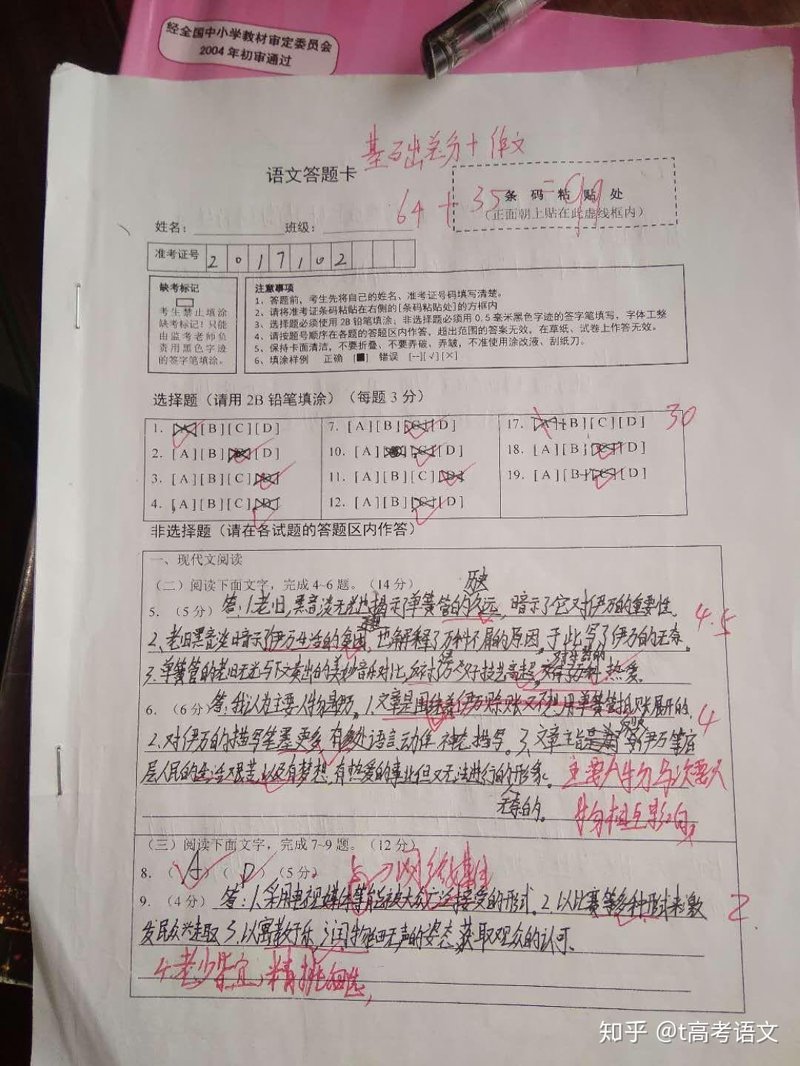 经全国中小学教材审定委员会
2004年初审通过
基础总分+作文
语文答题卡
64+35=99
条码粘贴处
(正面朝上贴在此虚线框内)
姓名: 班级:
准考证号 2 0 1 7 1 0 2
缺考标记
考生禁止填涂
缺考标记!只能
由监考老师负
责用黑色字迹
的签字笔填涂。
注意事项
1、答题前,考生先将自己的姓名、准考证号码填写清楚。
2、请将准考证条码粘贴在右侧的[条码粘贴处]的方框内
3、选择题必须使用2B铅笔填涂;非选择题必须用0.5毫米黑色字迹的签字笔填写,字体工整
4、请按题号顺序在各题的答题区内作答,超出范围的答案无效,在草纸、试卷上作答无效。
5、保持卡面清洁,不要折叠、不要弄破、弄皱,不准使用涂改液、刮纸刀。
6、填涂样例 正确 [■] 错误 [--][√][×]
选择题(请用2B铅笔填涂)(每题3分)
1. [A][B][C][D] 7. [A][B][C][D] 17. [A][B][C][D] 30
2. [A][B] [D] 10. [A] [C][D] 18. [A][B][C][D]
3. [A][B][C][D] 11. [A][B][C][D] 19. [A][B][C][D]
4. [A][B][C][D] 12. [A][B][C][D]
非选择题(请在各试题的答题区内作答)
一、现代文阅读
(二)阅读下面文字,完成4-6题。(14分)
历史
5.(5分)答:1.老旧,黑音淡无光也揭示了单簧管的久远,暗示了它对伊万的重要性。
4.5
2、老旧黑音淡暗示了伊万生活的贫困,也解释了万科不屑的原因。于此写了伊万的无奈。
3.单簧管的老旧无光与下文奏出的美妙音乐对比,热爱。
6.(6分)答:我认为主要人物是伊万。1.文章是围绕着伊万赊账又不想用单簧管抵账展开的,
4
2、对伊万的描写笔墨更多,有多处语言动作神态描写。3、文章主旨是伊万等底
层人民的生活艰苦,以及有梦想,有热爱的事业但又无法进行的形象。
无奈的。
主要人物与次要人
物相互影响
(三)阅读下面文字,完成7-9题。(12分)
8.(A)(D)(5分)
9.(4分)答:1.采用电视媒体等能被大众广泛接受的形式。2.以比赛等多种形式来激
2
发民众兴趣 3.以寓教于乐、润物细无声的姿态获取观众的认可。
4.老少皆宜,精挑细选,
知乎 @t高考语文